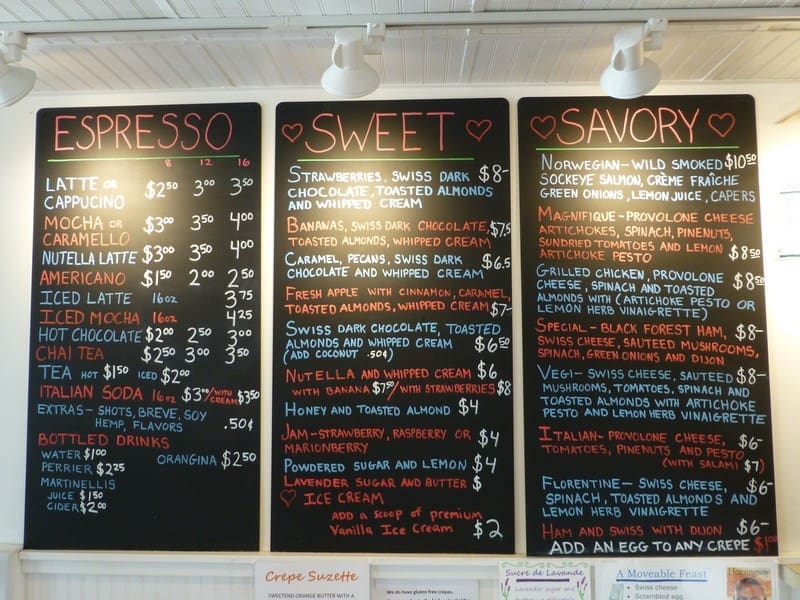 ESPRESSO
8 12 16
LATTE OR
CAPPUCINO $2.50 3.00 3.50
MOCHA OR
CARAMELLO $3.00 3.50 4.00
NUTELLA LATTE $3.00 3.50 4.00
AMERICANO $1.50 2.00 2.50
ICED LATTE 16oz 3.75
ICED MOCHA 16oz 4.25
HOT CHOCOLATE $2.00 2.50 3.00
CHAI TEA $2.50 3.00 3.50
TEA HOT $1.50 ICED $2.00
ITALIAN SODA 16oz $3.00/WITH CREAM $3.50
EXTRAS- SHOTS, BREVE, SOY
HEMP, FLAVORS .50¢
BOTTLED DRINKS
WATER $1.00
PERRIER $2.25 ORANGINA $2.50
MARTINELLIS
JUICE $1.50
CIDER $2.00
SWEET
STRAWBERRIES, SWISS DARK $8-
CHOCOLATE, TOASTED ALMONDS
AND WHIPPED CREAM
BANANAS, SWISS DARK CHOCOLATE, $7.5
TOASTED ALMONDS, WHIPPED CREAM
CARAMEL, PECANS, SWISS DARK $6.5
CHOCOLATE AND WHIPPED CREAM
FRESH APPLE WITH CINNAMON, CARAMEL,
TOASTED ALMONDS, WHIPPED CREAM $7-
SWISS DARK CHOCOLATE, TOASTED
ALMONDS AND WHIPPED CREAM $6.50
(ADD COCONUT .50¢)
NUTELLA AND WHIPPED CREAM $6
WITH BANANA $7.50/WITH STRAWBERRIES $8
HONEY AND TOASTED ALMOND $4
JAM-STRAWBERRY, RASPBERRY OR $4
MARIONBERRY
POWDERED SUGAR AND LEMON $4
LAVENDER SUGAR AND BUTTER $
ICE CREAM
ADD A SCOOP OF PREMIUM
Vanilla Ice Cream $2
SAVORY
NORWEGIAN- WILD SMOKED $10.50
SOCKEYE SALMON, CRÈME FRAÎCHE
GREEN ONIONS, LEMON JUICE, CAPERS
MAGNIFIQUE-PROVOLONE CHEESE
ARTICHOKES, SPINACH, PINENUTS,
SUNDRIED TOMATOES AND LEMON
ARTICHOKE PESTO $8.50
GRILLED CHICKEN, PROVOLONE $8.50
CHEESE, SPINACH AND TOASTED
ALMONDS WITH (ARTICHOKE PESTO OR
LEMON HERB VINAIGRETTE)
SPECIAL- BLACK FOREST HAM, $8-
SWISS CHEESE, SAUTEED MUSHROOMS,
SPINACH, GREEN ONIONS AND DIJON
VEGI- SWISS CHEESE, SAUTEED $8-
MUSHROOMS, TOMATOES, SPINACH AND
TOASTED ALMONDS WITH ARTICHOKE
PESTO AND LEMON HERB VINAIGRETTE
ITALIAN- PROVOLONE CHEESE, $6-
TOMATOES, PINENUTS AND PESTO
(WITH SALAMI $7)
FLORENTINE- SWISS CHEESE, $6-
SPINACH, TOASTED ALMONDS AND
LEMON HERB VINAIGRETTE
HAM AND SWISS WITH DIJON $6-
ADD AN EGG TO ANY CREPE $1.00
Crepe Suzette
SWEETEND ORANGE BUTTER WITH A
We do have gluten free crepes.
Sucre de Lavande
Lavender sugar and
A Moveable Feast
Swiss cheese
Scrambled egg
Hemingway